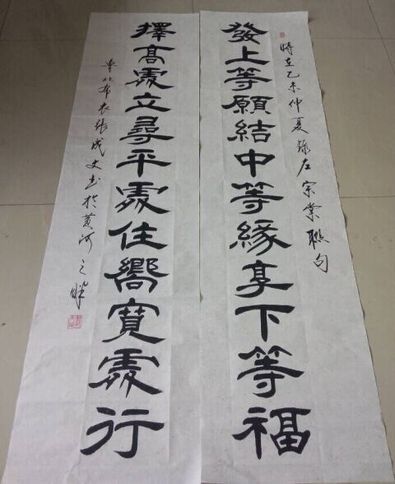 發上等願結中等緣享下等福
時在乙未仲夏錄左宗棠聯句
擇高處立尋平處住嚮寬處行
魯北布衣張成文书於黃河之畔